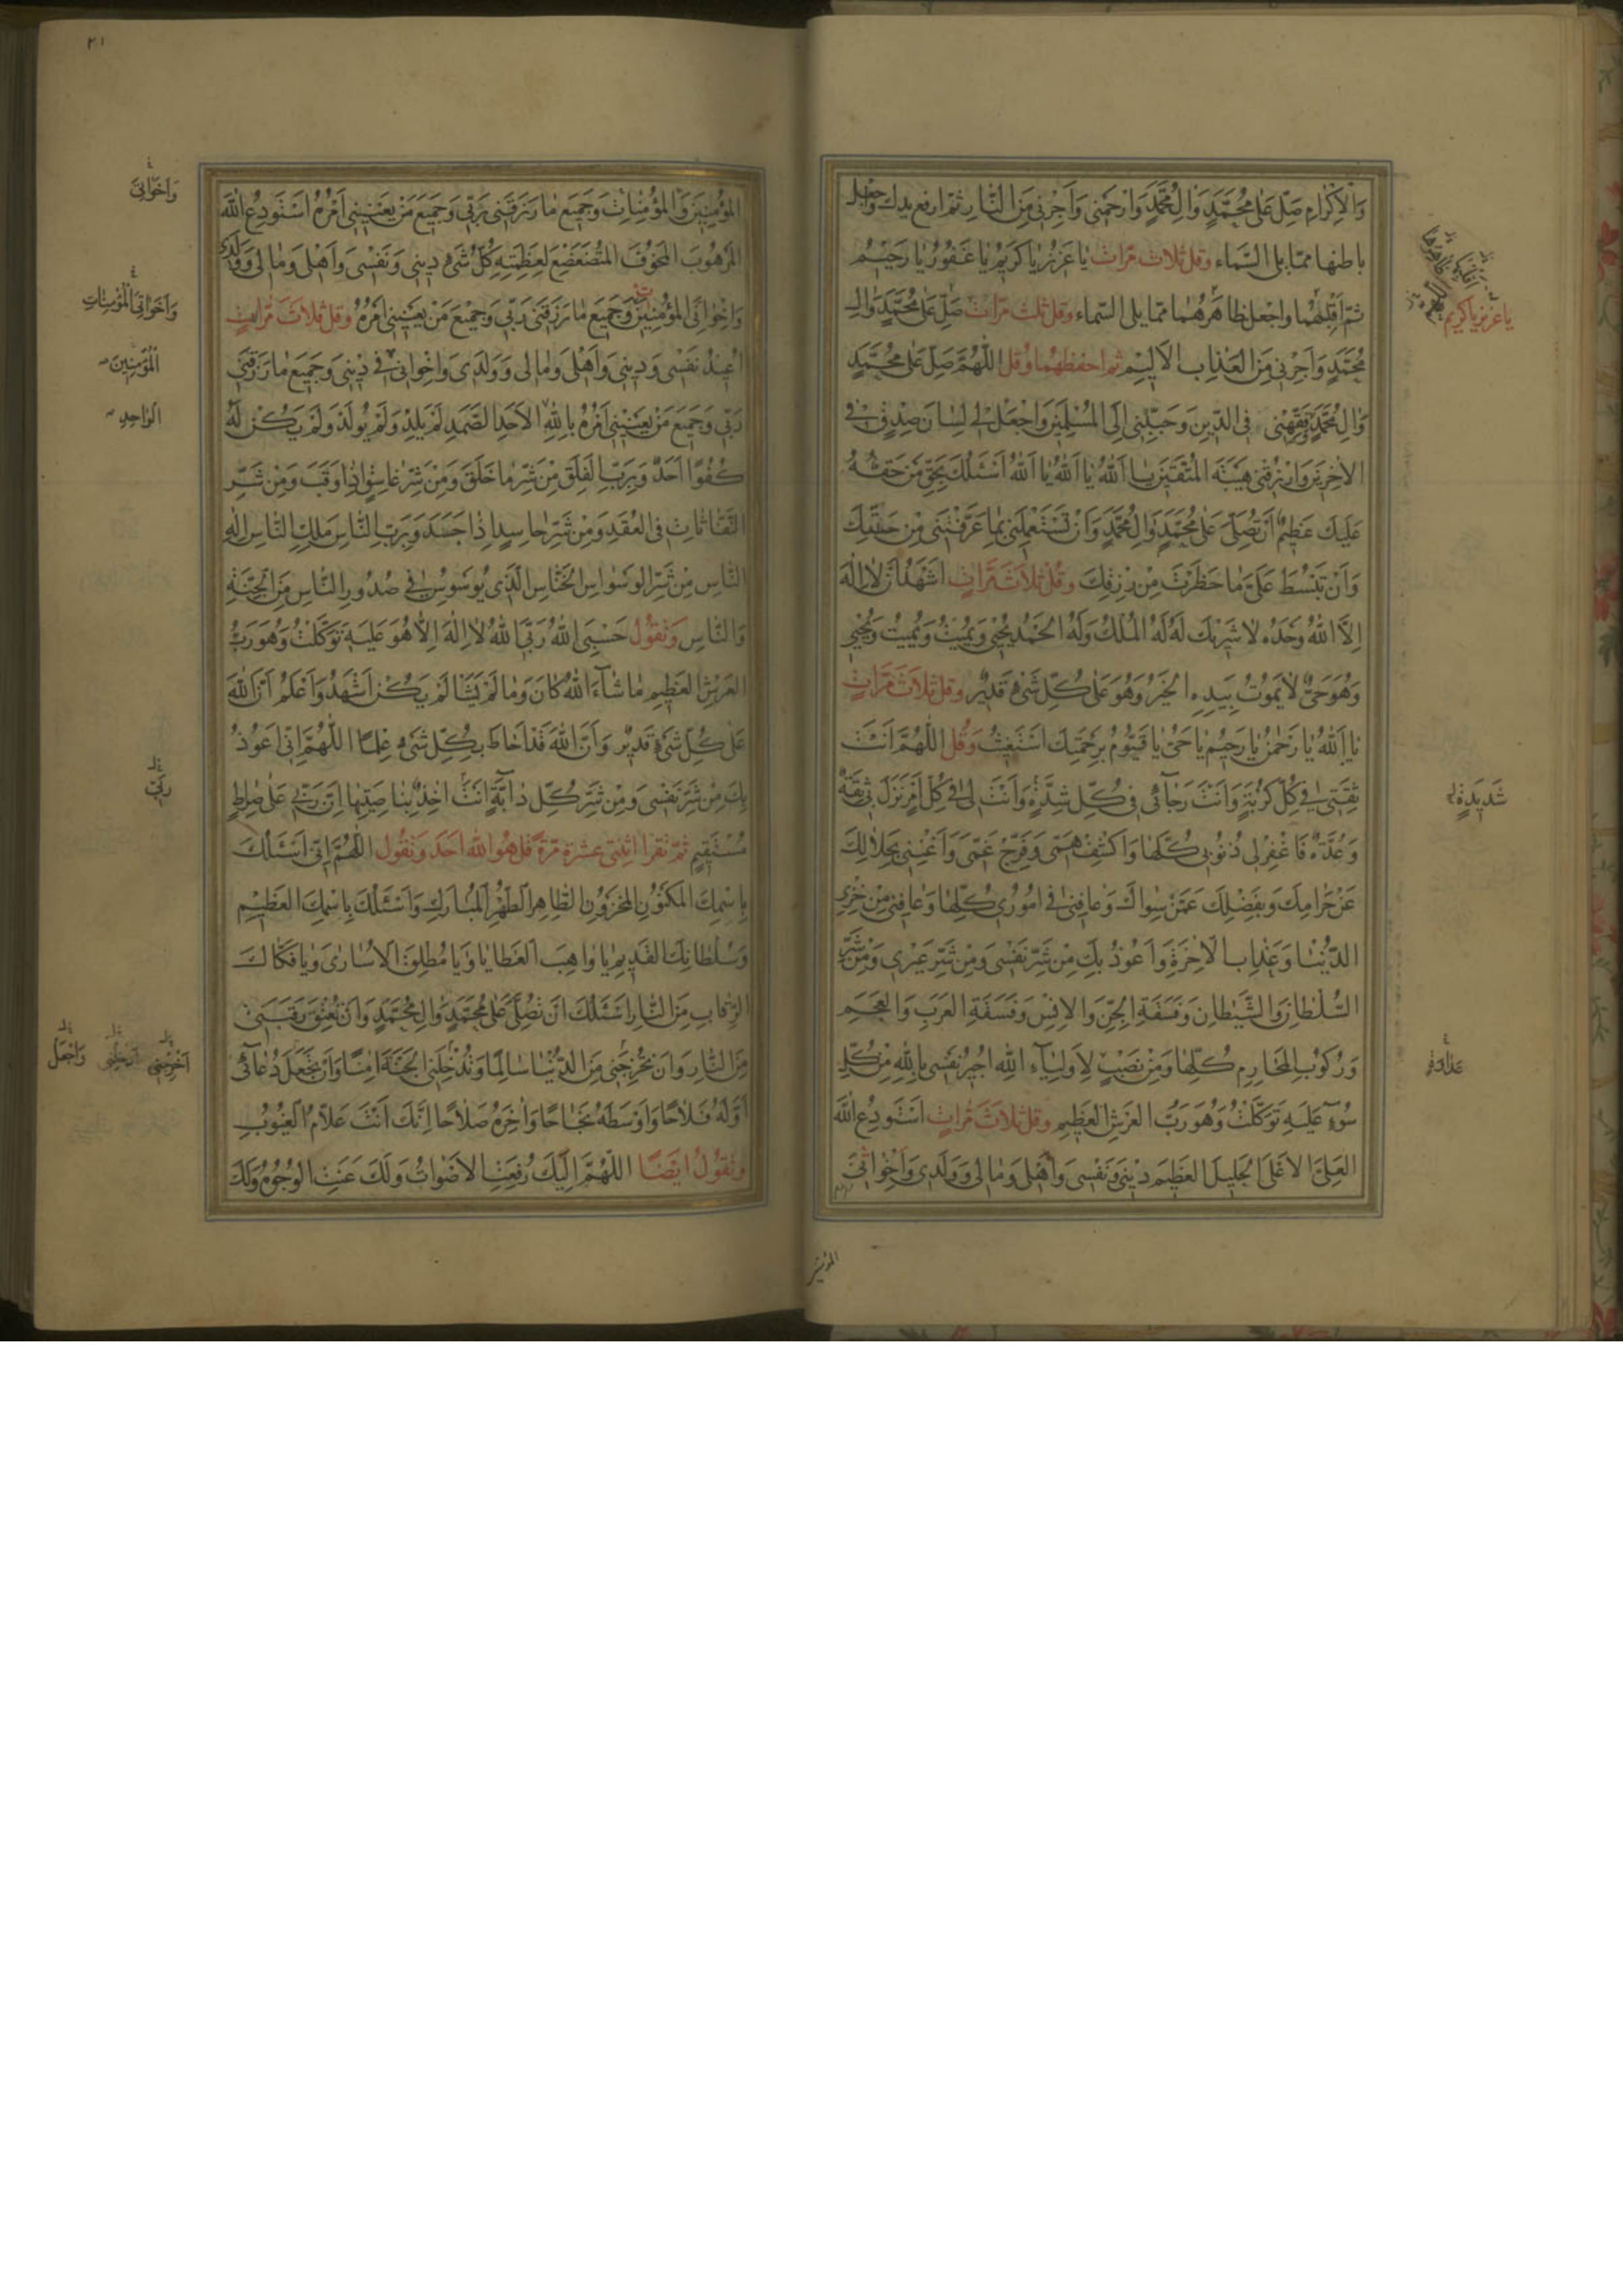 وَالْاِكْرَامِ صَلِّ عَلٰى مُحَمَّدٍ وَاٰلِ مُحَمَّدٍ وَارْحَمْنِى وَاَجِرْنِى مِنَ النَّارِ ثمّ ارفع يديك واجعل
باطنهما ممّا يلى السّماء وقل ثلاث مرّات يَا عَزِيزُ يَا كَرِيمُ يَا غَفُورُ يَا رَحِيمُ
ثمّ اقلبهما واجعل ظاهرهما ممّا يلى السّماء وقل ثلث مرّات صَلِّ عَلٰى مُحَمَّدٍ وَاٰلِ
مُحَمَّدٍ وَاَجِرْنِى مِنَ الْعَذَابِ الْاَلِيمِ ثم اخفظهما وقل اَللّٰهُمَّ صَلِّ عَلٰى مُحَمَّدٍ
وَاٰلِ مُحَمَّدٍ وَفَقِّهْنِى فِى الدِّينِ وَحَبِّبْنِى اِلَى الْمُسْلِمِينَ وَاجْعَلْ لِى لِسَانَ صِدْقٍ فِى
الْاٰخِرِينَ وَارْزُقْنِى هَيْبَةَ الْمُتَّقِينَ يَا اَللّٰهُ يَا اَللّٰهُ يَا اَللّٰهُ اَسْئَلُكَ بِحَقِّ مَنْ حَقُّهُ
عَلَيْكَ عَظِيمٌ اَنْ تُصَلِّىَ عَلٰى مُحَمَّدٍ وَاٰلِ مُحَمَّدٍ وَاَنْ تَسْتَعْمِلَنِى بِمَا عَرَّفْتَنِى مِنْ حَقِّكَ
وَاَنْ تَبْسُطَ عَلَىَّ مَا حَظَرْتَ مِنْ رِزْقِكَ وقُلْ ثَلَاثَ مَرَّاتٍ اَشْهَدُ اَنْ لَا اِلٰهَ
اِلَّا اللّٰهُ وَحْدَهُ لَا شَرِيكَ لَهُ لَهُ الْمُلْكُ وَلَهُ الْحَمْدُ يُحْيِى وَيُمِيتُ وَيُمِيتُ وَيُحْيِى
وَهُوَ حَىٌّ لَا يَمُوتُ بِيَدِهِ الْخَيْرُ وَهُوَ عَلٰى كُلِّ شَىْءٍ قَدِيرٌ وقل ثَلَاثَ مَرَّاتٍ
يَا اَللّٰهُ يَا رَحْمٰنُ يَا رَحِيمُ يَا حَىُّ يَا قَيُّومُ بِرَحْمَتِكَ اَسْتَغِيثُ وَقُل اَللّٰهُمَّ اَنْتَ
ثِقَتِى فِى كُلِّ كُرْبَةٍ وَاَنْتَ رَجَآئِى فِى كُلِّ شِدَّةٍ وَاَنْتَ لِى فِى كُلِّ اَمْرٍ نَزَلَ بِى ثِقَةٌ
وَعُدَّةٌ فَاغْفِرْ لِى ذُنُوبِى كُلَّهَا وَاكْشِفْ هَمِّى وَفَرِّجْ غَمِّى وَاَغْنِنِى بِحَلَالِكَ
عَنْ حَرَامِكَ وَبِفَضْلِكَ عَمَّنْ سِوَاكَ وَعَافِنِى فِى اُمُورِى كُلِّهَا وَعَافِنِى مِنْ خِزْىِ
الدُّنْيَا وَعَذَابِ الْاٰخِرَةِ وَاَعُوذُ بِكَ مِنْ شَرِّ نَفْسِى وَمِنْ شَرِّ غَيْرِى وَمِنْ شَرِّ
السُّلْطَانِ وَالشَّيْطَانِ وَفَسَقَةِ الْجِنِّ وَالْاِنْسِ وَفَسَقَةِ الْعَرَبِ وَالْعَجَمِ
وَرُكُوبِ الْمَحَارِمِ كُلِّهَا وَمَنْ نَصَبَ لِاَوْلِيَآءِ اللّٰهِ اُجِيرُ نَفْسِى بِاللّٰهِ مِنْ كُلِّ
سُوٓءٍ عَلَيْهِ تَوَكَّلْتُ وَهُوَ رَبُّ الْعَرْشِ الْعَظِيمِ وقل ثلَاثَ مَرَّاتٍ اَسْتَوْدِعُ اللّٰهَ
الْعَلِىَّ الْاَعْلَى الْجَلِيلَ الْعَظِيمَ دِينِى وَنَفْسِى وَاَهْلِى وَمَالِى وَوَلَدِى وَاِخْوَانِى
يا عزيز يا كريم
شَدِيدَةٍ
عداوة
٢١
الْمُؤْمِنِينَ وَالْمُؤْمِنَاتِ وَجَمِيعَ مَا رَزَقَنِى رَبِّى وَجَمِيعَ مَنْ يَعْنِينِى اَمْرُهُ اَسْتَوْدِعُ اللّٰهَ
الْمَرْهُوبَ الْمَخُوفَ الْمُتَضَعْضِعَ لِعَظَمَتِهِ كُلُّ شَىْءٍ دِينِى وَنَفْسِى وَاَهْلِى وَمَالِى وَوَلَدِى
وَاِخْوَانِىَ الْمُؤْمِنِينَ وَجَمِيعَ مَا رَزَقَنِى رَبِّى وَجَمِيعَ مَنْ يَعْنِينِى اَمْرُهُ وقل ثَلَاثَ مَرَّاتٍ
اُعِيذُ نَفْسِى وَدِينِى وَاَهْلِى وَمَالِى وَوَلَدِى وَاِخْوَانِى فِى دِينِى وَجَمِيعَ مَا رَزَقَنِى
رَبِّى وَجَمِيعَ مَنْ يَعْنِينِى اَمْرُهُ بِاللّٰهِ الْاَحَدِ الصَّمَدِ لَمْ يَلِدْ وَلَمْ يُولَدْ وَلَمْ يَكُنْ لَهُ
كُفُوًا اَحَدٌ وَبِرَبِّ الْفَلَقِ مِنْ شَرِّ مَا خَلَقَ وَمِنْ شَرِّ غَاسِقٍ اِذَا وَقَبَ وَمِنْ شَرِّ
النَّفَّاثَاتِ فِى الْعُقَدِ وَمِنْ شَرِّ حَاسِدٍ اِذَا حَسَدَ وَبِرَبِّ النَّاسِ مَلِكِ النَّاسِ اِلٰهِ
النَّاسِ مِنْ شَرِّ الْوَسْوَاسِ الْخَنَّاسِ الَّذِى يُوَسْوِسُ فِى صُدُورِ النَّاسِ مِنَ الْجِنَّةِ
وَالنَّاسِ وَتَقُولُ حَسْبِىَ اللّٰهُ رَبِّىَ اللّٰهُ لَا اِلٰهَ اِلَّا هُوَ عَلَيْهِ تَوَكَّلْتُ وَهُوَ رَبُّ
الْعَرْشِ الْعَظِيمِ مَا شَآءَ اللّٰهُ كَانَ وَمَا لَمْ يَشَأْ لَمْ يَكُنْ اَشْهَدُ وَاَعْلَمُ اَنَّ اللّٰهَ
عَلٰى كُلِّ شَىْءٍ قَدِيرٌ وَاَنَّ اللّٰهَ قَدْ اَحَاطَ بِكُلِّ شَىْءٍ عِلْمًا اَللّٰهُمَّ اِنِّى اَعُوذُ
بِكَ مِنْ شَرِّ نَفْسِى وَمِنْ شَرِّ كُلِّ دَآبَّةٍ اَنْتَ اٰخِذٌ بِنَاصِيَتِهَا اِنَّ رَبِّى عَلٰى صِرَاطٍ
مُسْتَقِيمٍ ثمّ تقرا اثنتى عشرة مرّة قل هُوَ اللّٰه اَحَد وَتَقُول اَللّٰهُمَّ اِنِّى اَسْئَلُكَ
بِاسْمِكَ الْمَكْنُونِ الْمَخْزُونِ الطَّاهِرِ الطُّهْرِ الْمُبَارَكِ وَاَسْئَلُكَ بِاسْمِكَ الْعَظِيمِ
وَسُلْطَانِكَ الْقَدِيمِ يَا وَاهِبَ الْعَطَايَا وَيَا مُطْلِقَ الْاُسَارٰى وَيَا فَكَّاكَ
الرِّقَابِ مِنَ النَّارِ اَسْئَلُكَ اَنْ تُصَلِّىَ عَلٰى مُحَمَّدٍ وَاٰلِ مُحَمَّدٍ وَاَنْ تُعْتِقَ رَقَبَتِى
مِنَ النَّارِ وَاَنْ تُخْرِجَنِى مِنَ الدُّنْيَا سَالِمًا وَتُدْخِلَنِى الْجَنَّةَ اٰمِنًا وَاَنْ تَجْعَلَ دُعَآئِى
اَوَّلَهُ فَلَاحًا وَاَوْسَطَهُ نَجَاحًا وَاٰخِرَهُ صَلَاحًا اِنَّكَ اَنْتَ عَلَّامُ الْغُيُوبِ
وتَقُولُ اَيْضًا اَللّٰهُمَّ اِلَيْكَ رُفِعَتِ الْاَصْوَاتُ وَلَكَ عَنَتِ الْوُجُوهُ وَلَكَ
وَاَخَوَاتِى
وَاَخَوَاتِىَ الْمُؤْمِنَاتِ
الْمُؤْمِنِينَ
الْوَاحِدِ
رَبِّى
اَخْرِجْنِى
وَاجْعَلْ